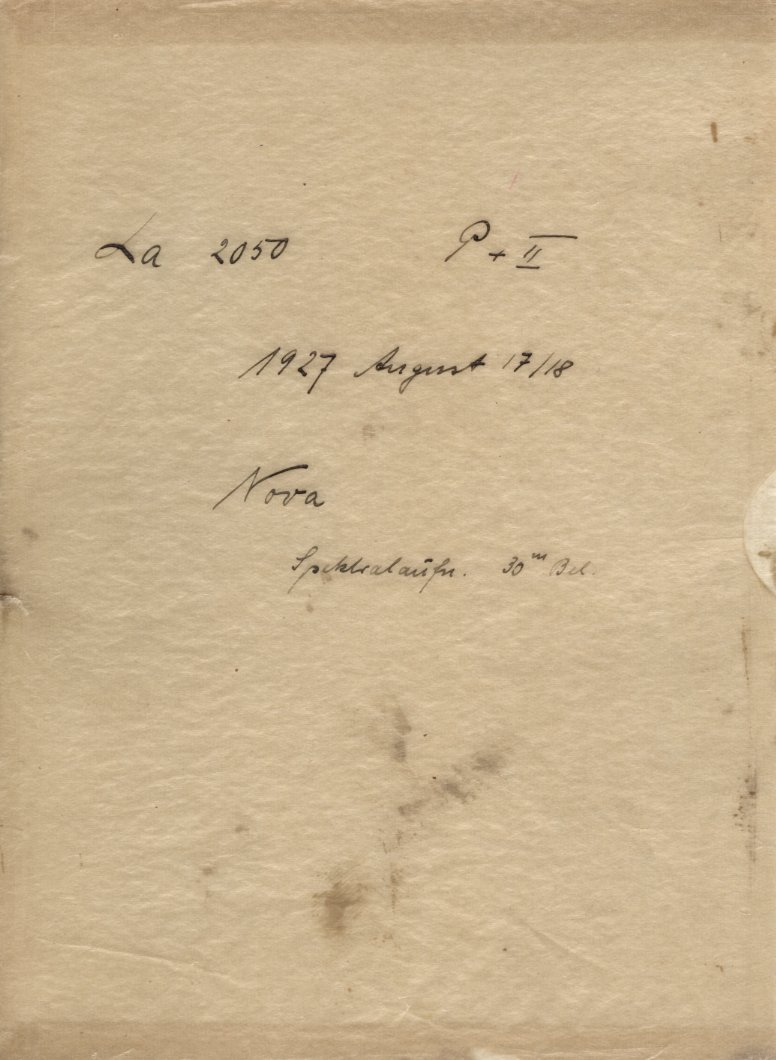 La 2050 P + II
1927 August 17/18
Nova
Spektralaufn. 30ᵐ Bel.